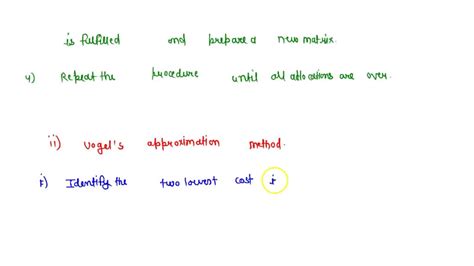 is fulfilled and prepare a new matrix.
4) Repeat the procedure until all allocations are over.
ii) Vogel's approximation method.
i) Identify the two lowest cost i